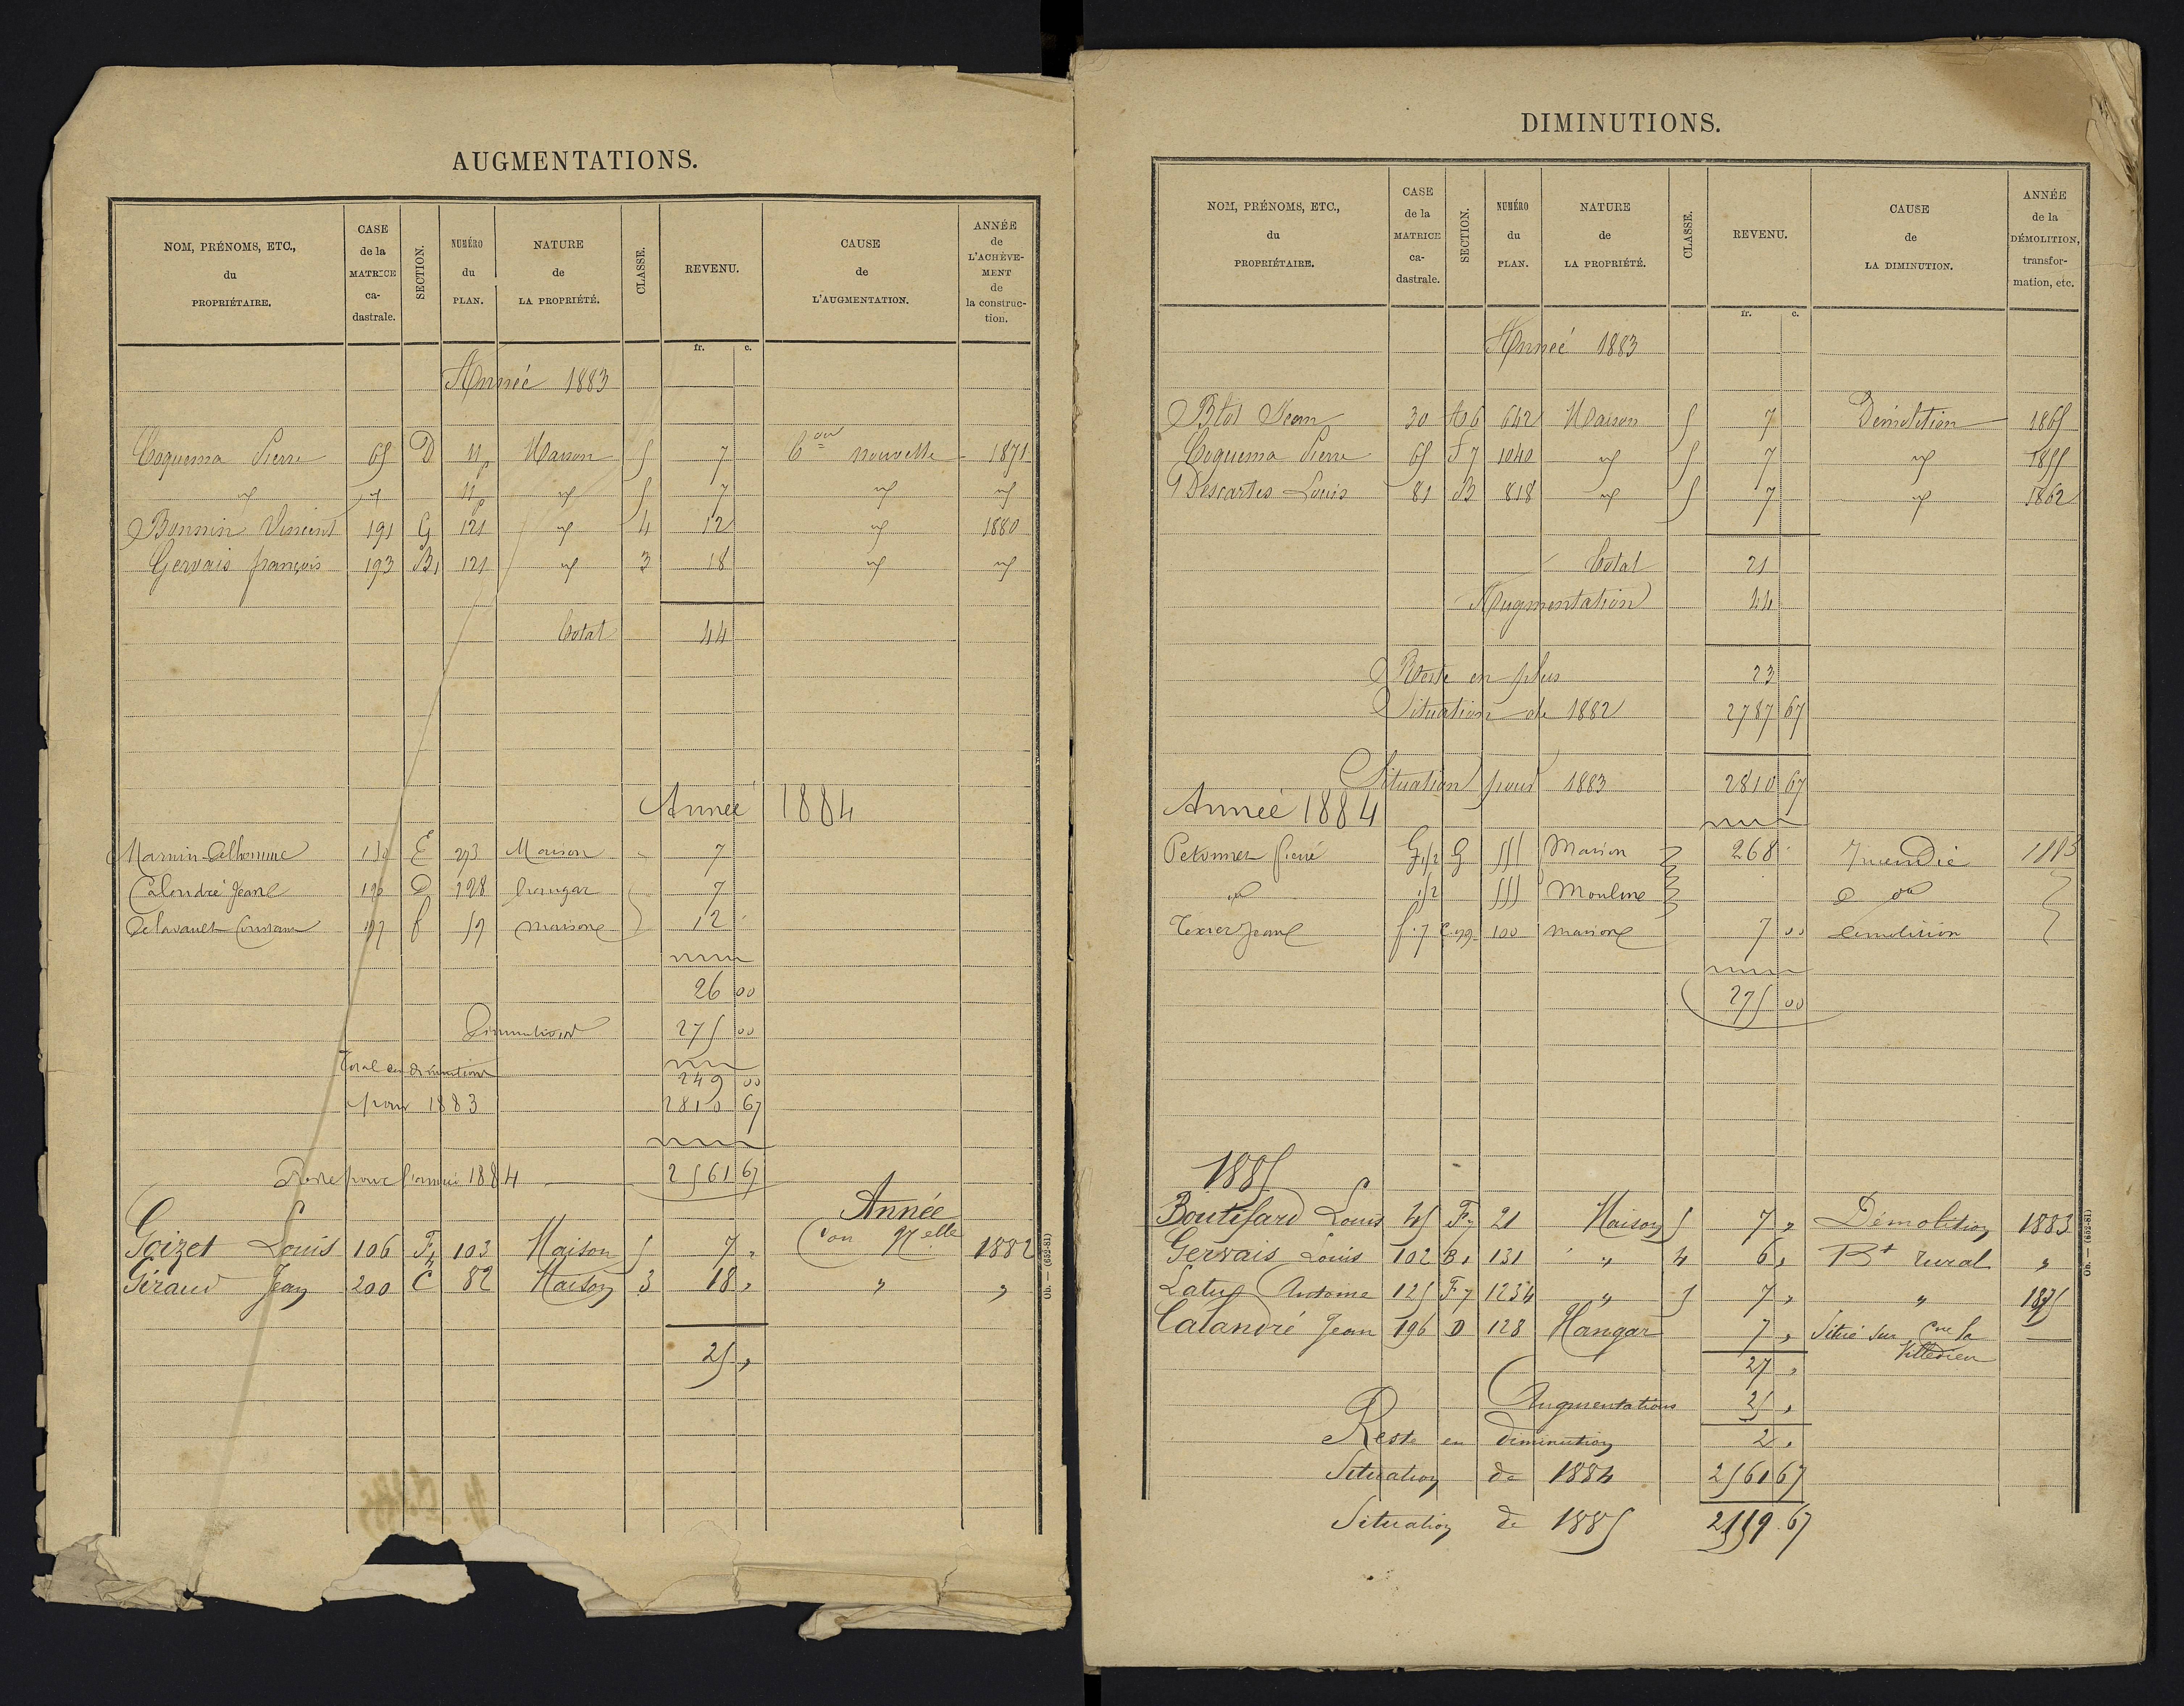 AUGMENTATIONS.
NOM, PRÉNOMS, ETC., du PROPRIÉTAIRE. CASE de la MATRICE ca-dastrale. SECTION. NUMÉRO du PLAN. NATURE de LA PROPRIÉTÉ. CLASSE. REVENU. CAUSE de L'AUGMENTATION. ANNÉE de L'ACHÈVE-MENT de la construc-tion.
fr. c.
Année 1883
Coquema Pierre 65 D 11p Maison 5 7 Con nouvelle 1871
id id 11p id 5 7 id id
Bonnin Vincent 191 G 121 id 4 12 id 1880
Gervais françois 193 B1 121 id 3 18 id id
Total 44
Année 1884
Marnin Delhomme E 273 Maison 7
Calendré Jean D 128 hangar 7
Delavault 197 f 57 maison 12
26 00
Diminution 275 00
Total en diminution 249 00
pour 1883 2810 67
Reste pour l'année 1884 2561 67
Année
Goizet Louis 106 F4 103 Maison 5 7 " Con Nelle 1882
Giraud Jean 200 C 82 Maison 3 18 " " "
25 "
Ob. — (652-81)
DIMINUTIONS.
NOM, PRÉNOMS, ETC., du PROPRIÉTAIRE. CASE de la MATRICE ca-dastrale. SECTION. NUMÉRO du PLAN. NATURE de LA PROPRIÉTÉ. CLASSE. REVENU. CAUSE de LA DIMINUTION. ANNÉE de la DÉMOLITION, transfor-mation, etc.
fr. c.
Année 1883
Blot Jean 30 642 Maison 5 7 Démolition 1865
Coquema Pierre 65 F7 1040 id 5 7 id 1855
Descartes Louis 81 B 818 id 5 7 id 1862
Total 21
Augmentation 44
Reste en plus 23
Situation de 1882 2787 67
Situation pour 1883 2810 67
Année 1884
pierre G 555 Maison 268 Incendie 1883
id 555 Mouline do
Texier Jean 100 maison 7 00 demolition
275 00
1885
Boutifard Louis 45 F7 21 Maison 5 7 " Démolition 1883
Gervais Louis 102 B1 131 " 4 6 " Bt rural "
Latus Antoine 125 F7 1234 " 5 7 " " 1875
Calandré Jean 196 D 128 Hangar 7 " Situé sur Cne la
Villedieu
27 "
Augmentations 25 "
Reste en diminution 2 "
Situation de 1884 2561 67
Situation de 1885 2559 67
Ob. — (652-81)